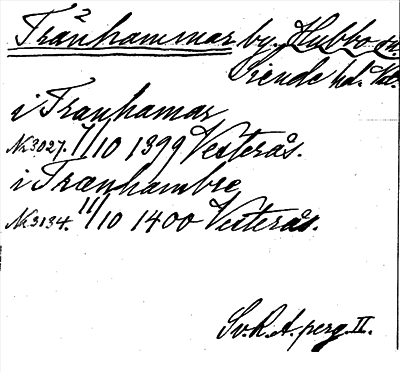 Tranhammar by, Hubbo sn.
Siende hd. Vd.
i Tranhamar
№ 3027. 7/10 1399 Vesterås.
i Trænhambre
№ 3134. 11/10 1400 Vesterås.
Sv. R. A. perg. II.